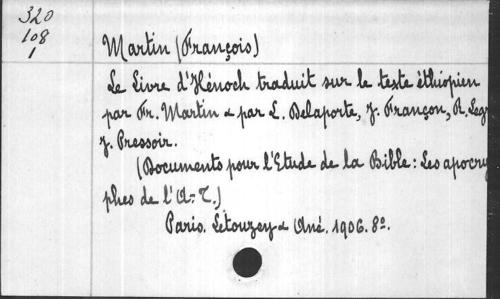 320
108
1
Martin (François)
Le Livre d'Hénoch traduit sur le texte éthiopien
par Fr. Martin & par L. Delaporte, J. Françon, R. Legr
J. Pressoir.
(Documents pour l'Etude de la Bible : Les apocry
phes de l'A.-T.)
Paris. Letouzey & Ané. 1906. 8º.